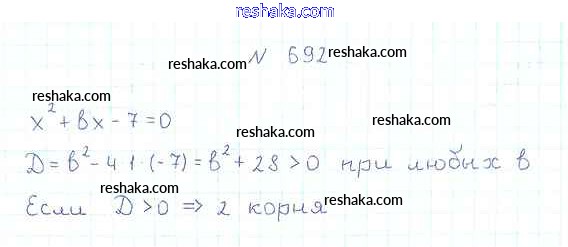 www.reshaka.com
№ 692 reshaka.com
reshaka.com
reshaka.com
x² + bx - 7 = 0
reshaka.com
reshaka.com
D = b² - 4·1·(-7) = b² + 28 > 0 при любых b
reshaka.com
Если D > 0 => 2 корня reshaka.com